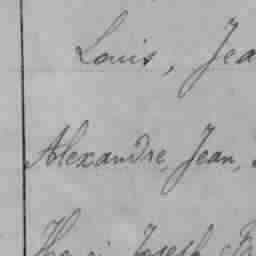 Louis, Jea
Alexandre, Jean,
Joseph